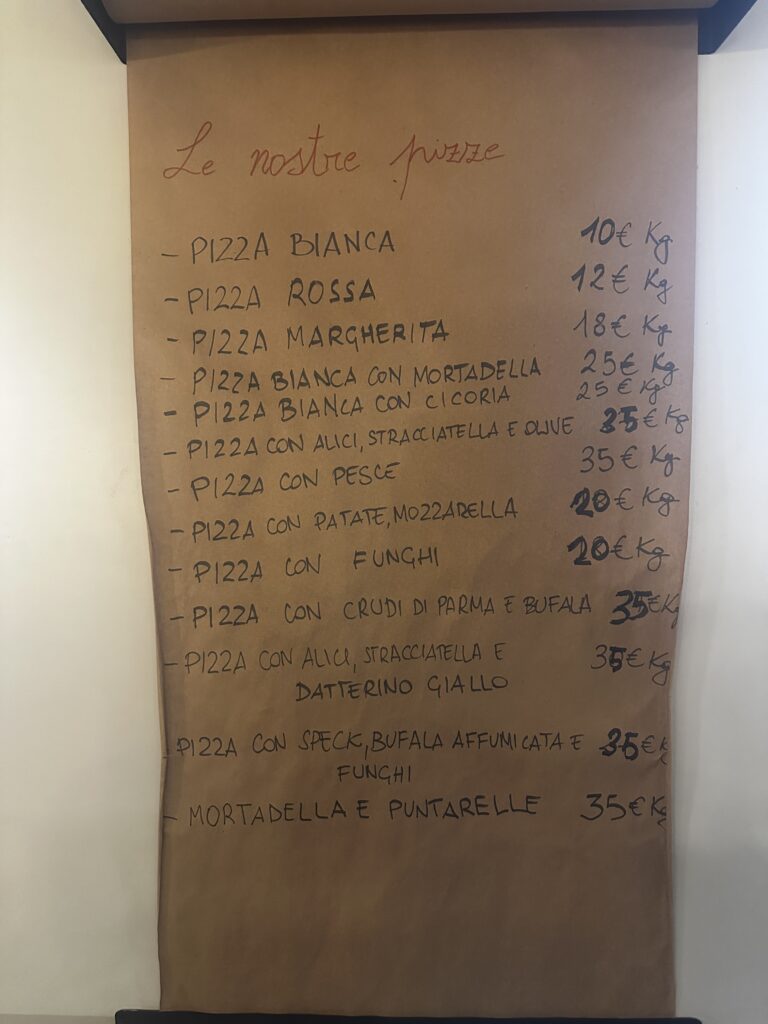 Le nostre pizze
- PIZZA BIANCA 10€ Kg
- PIZZA ROSSA 12€ Kg
- PIZZA MARGHERITA 18€ Kg
- PIZZA BIANCA CON MORTADELLA 25€ Kg
- PIZZA BIANCA CON CICORIA 25€ Kg
- PIZZA CON ALICI, STRACCIATELLA E OLIVE 35€ Kg
- PIZZA CON PESCE 35€ Kg
- PIZZA CON PATATE, MOZZARELLA 20€ Kg
- PIZZA CON FUNGHI 20€ Kg
- PIZZA CON CRUDI DI PARMA E BUFALA 35€ Kg
- PIZZA CON ALICI, STRACCIATELLA E 35€ Kg
DATTERINO GIALLO
- PIZZA CON SPECK, BUFALA AFFUMICATA E 35€ K
FUNGHI
- MORTADELLA E PUNTARELLE 35€ Kg